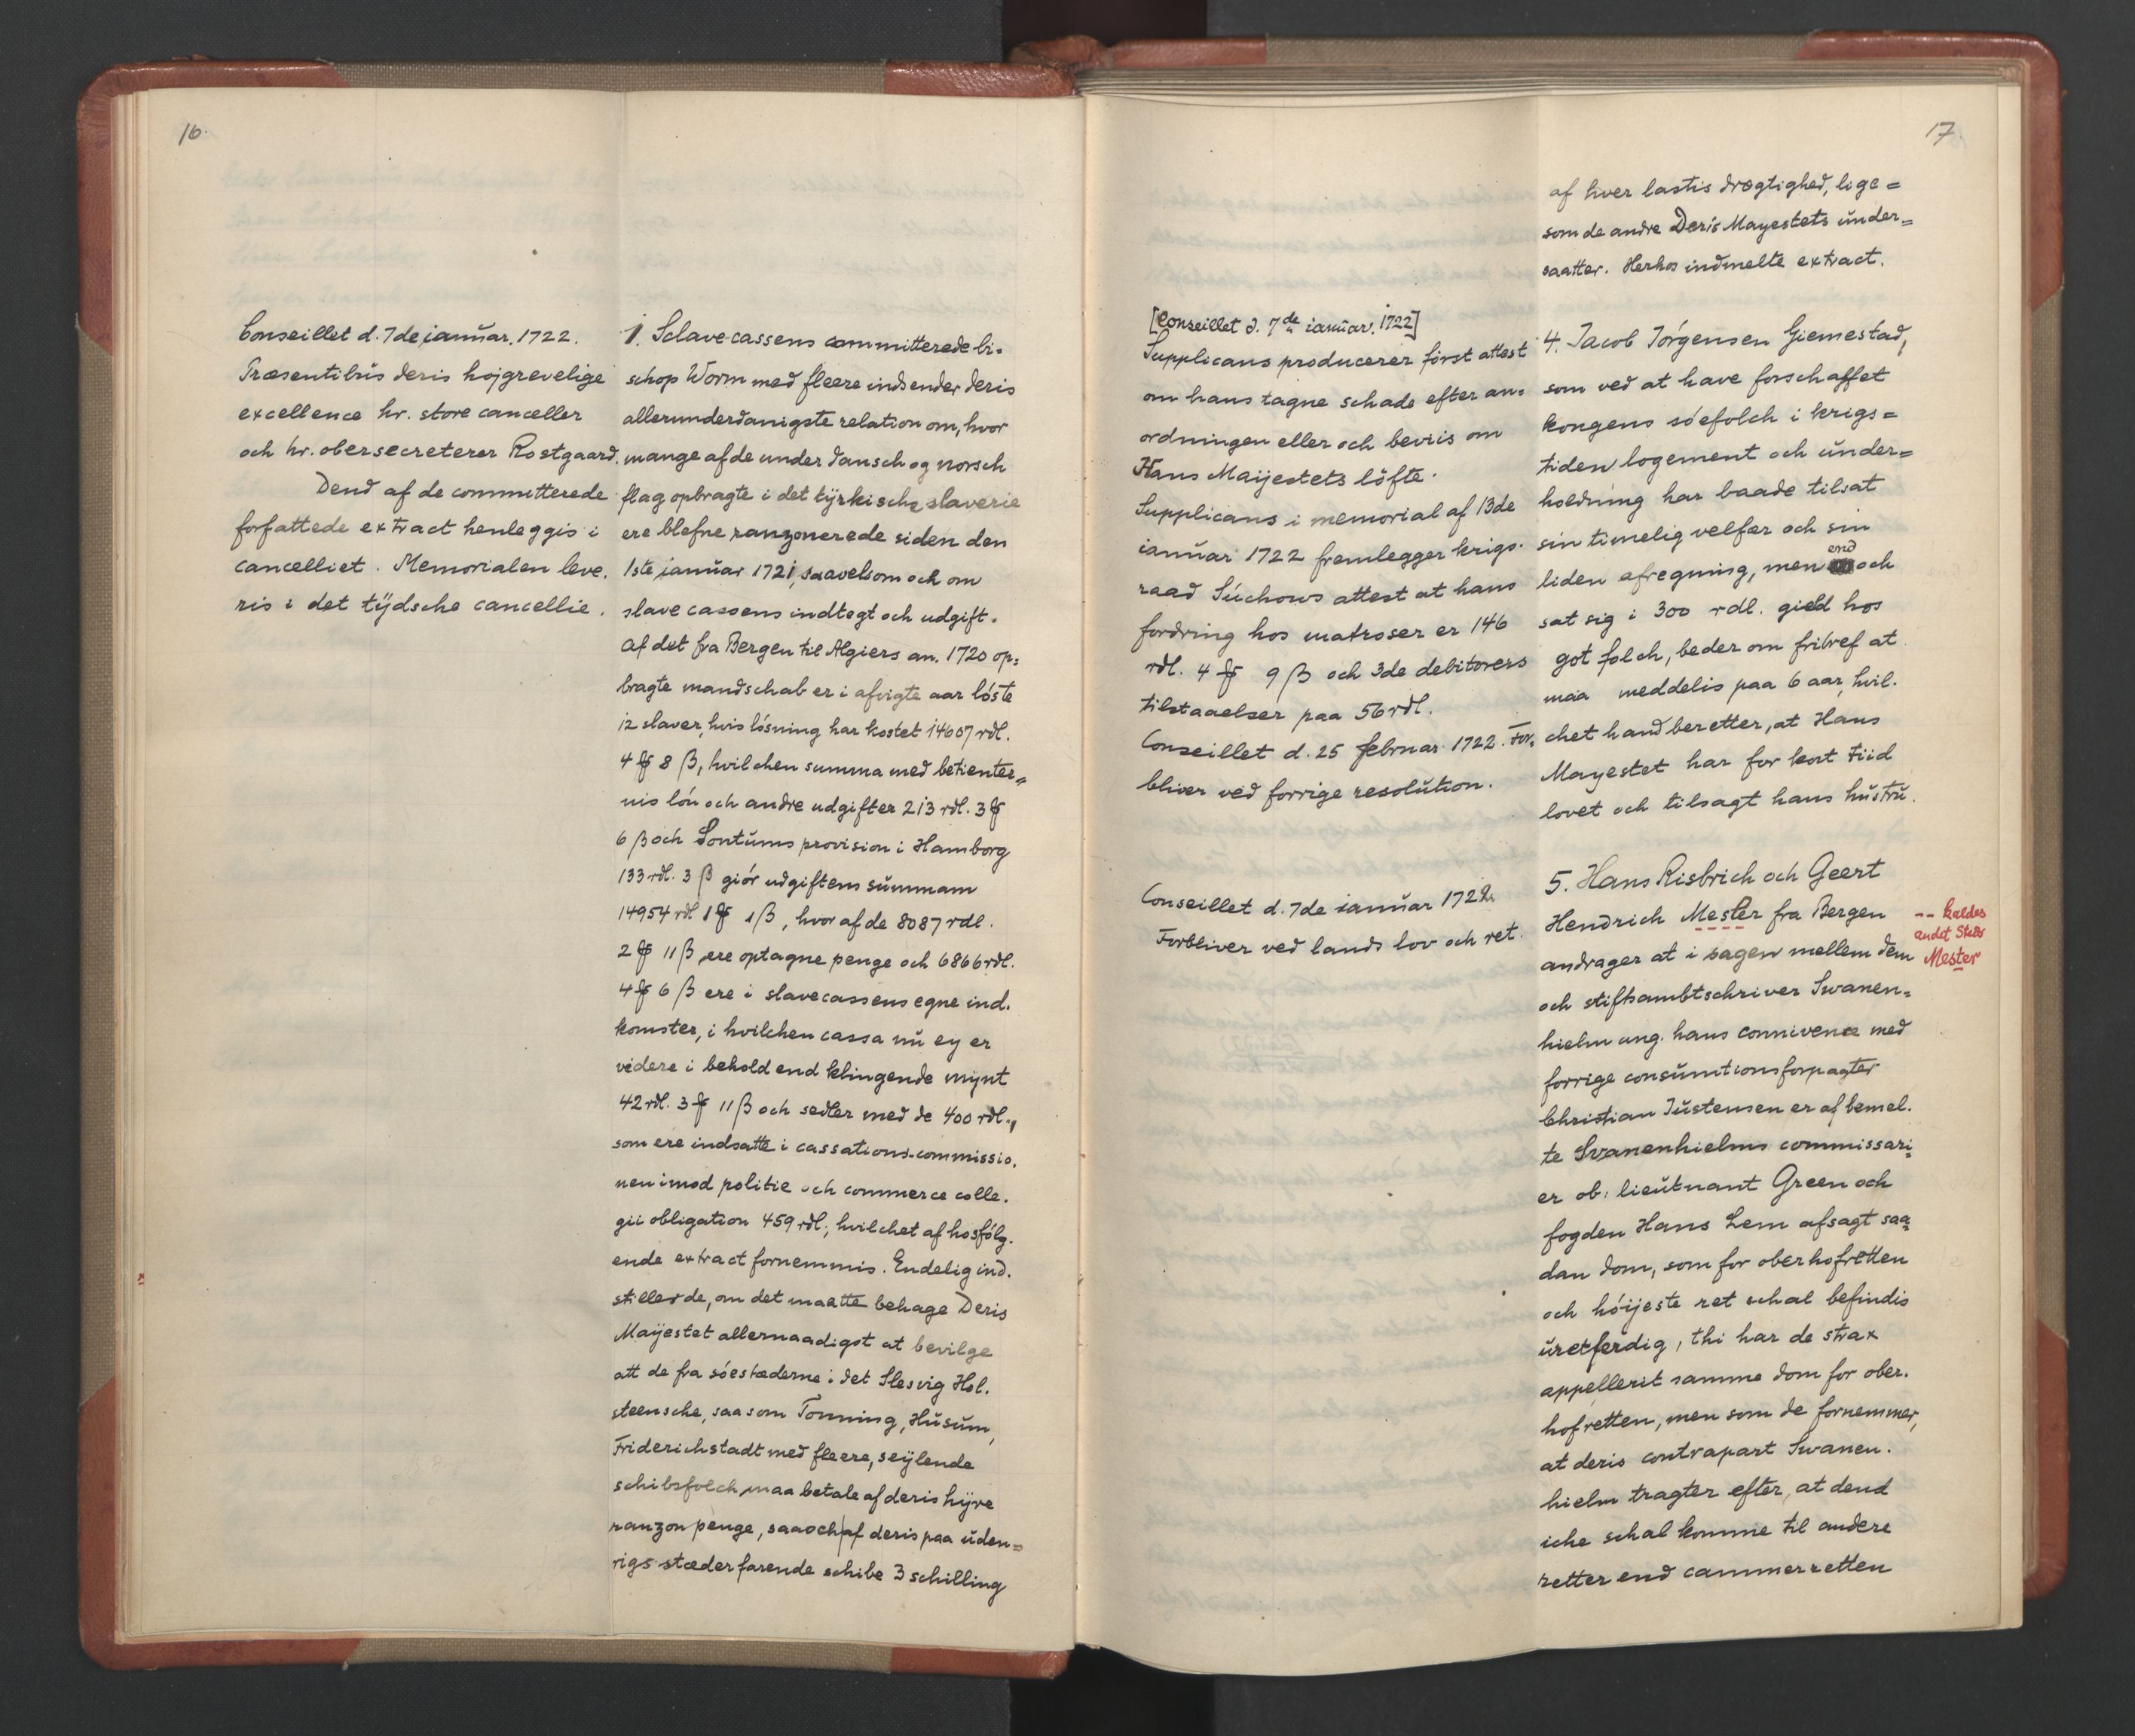 16.
Conseillet d. 7de januar. 1722.
Præsentibus deris højgrevelige
excellence hr. store canceller
och hr. obersecreterer Rostgaard.
Dend af de committerede
forfattede extract henleggis i
cancelliet. Memorialen leve.
ris i det tÿdsche cancellie.
1. Sclavecassens committerede bi-
schop Worm med fleere indsender deris
allerunderdanigste relation om, hvor
mange af de under dansch og norsch
flag opbragte i det tÿrkische slaverie
ere blefne ranzonerede siden den
1ste januar 1721, saavelsom och om
slavecassens indtegt och udgift.
Af det fra Bergen til Algiers an. 1720 op=
bragte mandschab er i afvigte aar löste
12 slaver, hvis lösning har kostet 14607 rdl.
4 ₰ 8 β, hvilchen summa med betienter=
nis lön och andre udgifter 213 rdl. 3 ₰
6 β och Sontums provision i Hamborg
133 rdl. 3 β giör udgiftens summam
14954 rdl 1 ₰ 1 β, hvoraf de 8087 rdl.
2 ₰ 11 β ere optagne penge och 6866 rdl.
4 ₰ 6 β ere i slavecassens egne ind.
komster, i hvilchen cassa nu ey er
videre i behold end klingende mÿnt
42 rdl. 3 ₰ 11 β och sedler med de 400 rdl.,
som ere indsatte i cassations-commissio.
nen imod politie och commerce colle.
gii obligation 459 rdl; hvilchet af hosfölg.
ende extract fornemmis. Endelig ind.
stiller de, om det maatte behage Deris
Maÿestet allernaadigst at bevilge
att de fra söestæderne i det Slesvig Hol.
steensche, saasom Tonning, Husum,
Friderichstadt med fleere, seÿlende
schibsfolch maa betale af deris hÿre
ranzonpenge, saaoch af deris paa uden=
rigs stæder farende schibe 3 schilling
17.
af hver lastis drægtighed, lige=
som de andre Deris Mayestets under=
saatter. Herhos indmelte extract.
[Conseillet d. 7de januar. 1722]
Supplicans producerer först attest
om hans tagne schade efter an=
ordningen eller och beviis om
Hans Maijestets löfte.
Supplicans i memorial af 13de
januar 1722 fremlegger krigs.
raad Súchows attest at hans
fordring hos matroser er 146
rdl. 4 ₰ 9 β och 3de debitorers
tilstaaelser paa 56 rdl.
Conseillet d. 25 februar 1722. For.
bliver ved forrige resolution.
4. Jacob Jörgensen Giemestad,
som ved at have forschaffet
kongens söefolch i krigs=
tiden logement och under=
holdning har baade tilsat
sin timelig velfær och sin
liden afregning, men end och
sat sig i 300 rdl. gield hos
got folch, beder om fribref at
maa meddelis paa 6 aar, hvil.
chet hand beretter, at Hans
Mayestet har for kort tiid
lovet och tilsagt hans hustru.
Conseillet d. 7de januar 1722.
Forbliver ved lands lov och ret.
5. Hans Risbrich och Geert
Hendrich Mester fra Bergen
andrager at i sagen mellem dem
och stiftsambtschriver Swanen=
hielm ang. hans connivence med
forrige consumtionsforpagter
Christian Justensen er af bemel.
te Svanenhielms commissari=
er ob: lieutnant Green och
fogden Hans Lem afsagt saa=
dan dom, som for oberhofretten
och höijeste ret schal befindis
uretferdig, thi har de strax
appellerit samme dom for ober.
hofretten, men som de fornemmer,
at deris contrapart Swanen.
hielm tragter efter, at dend
iche schal komme til andere
retter end cammerretten
-- kaldes
andet Steds
Mester